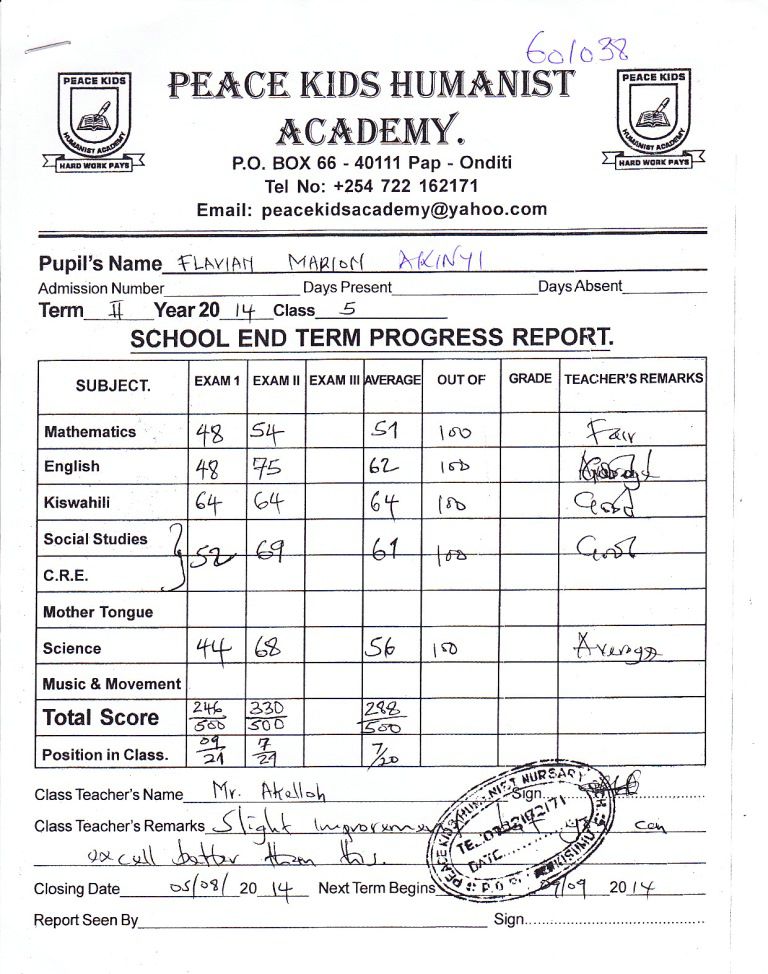 601038
PEACE KIDS
HUMANIST ACADEMY
HARD WORK PAYS
PEACE KIDS HUMANIST
ACADEMY.
PEACE KIDS
HUMANIST ACADEMY
HARD WORK PAYS
P.O. BOX 66 - 40111 Pap - Onditi
Tel No: +254 722 162171
Email: peacekidsacademy@yahoo.com
Pupil's Name FLAVIAN MARION AKINYI
Admission Number Days Present Days Absent
Term II Year 20 14 Class 5
SCHOOL END TERM PROGRESS REPORT.
SUBJECT. EXAM 1 EXAM II EXAM III AVERAGE OUT OF GRADE TEACHER'S REMARKS
Mathematics 48 54 51 100 Fair
English 48 75 62 100 Good
Kiswahili 64 64 64 100 Good
Social Studies
C.R.E. 52 69 61 100 Good
Mother Tongue
Science 44 68 56 100 Average
Music & Movement
Total Score 246/500 330/500 288/500
Position in Class. 09/21 7/21 7/20
Class Teacher's Name Mr. Akelloh Sign.
Class Teacher's Remarks Slight improvement can
excell better than this.
Closing Date 05/08/ 20 14 Next Term Begins 09/09 2014
Report Seen By Sign
PEACE KIDS HUMANIST NURSARY
TEL: 0722162171
DATE
P.O. B